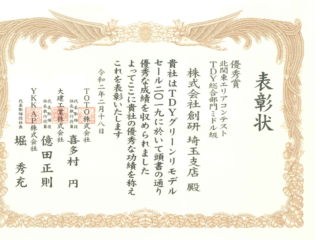 表彰状
優秀賞
北関東エリアコンテスト
TDY総合部門 ミドル級
株式会社 創研 埼玉支店 殿
貴社はTDYグリーンリモデル
セール二〇一九に於いて頭書の通り
優秀な成績を収められました
よってここに貴社の優秀な功績を称え
これを表彰いたします
令和二年二月十八日
TOTO株式会社
喜多村 円
大建工業株式会社
億田正則
YKK AP株式会社
堀 秀充